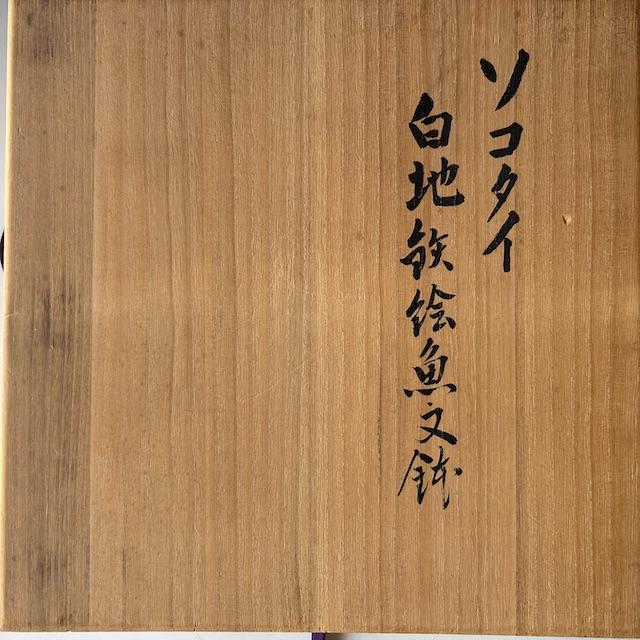 ソコタイ
白地鉄絵魚文鉢